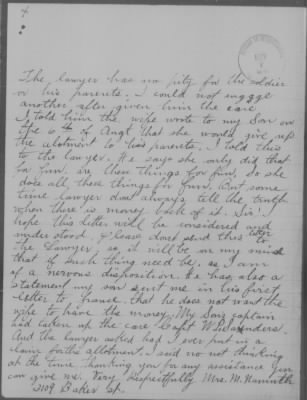 4
The lawyer has no pity for the soldier
or his parents. I could not engage
another after given him the care
I told him the wife wrote to my Son on
the 6th of Augt that she would give up
the alotment to his parents. I told this
to the lawyer. He says she only did that
for fun, are these things for fun, So she
does all these things for fun. But some
time Lawyer does always tell the truth
when there is money back of it. Sir I
hope this letter will be considered and
understood, please dont send this letter to
the Lawyer, as it will be on my mind
that if such thing need be, as I am
of a nervous disposition. He has also a
Statement my son sent me in his first
letter to France that he does not want the
wife to have the money. My Sons captain
had taken up the care Capt W. Saunders.
And the lawyer asked had I ever put in a
claim for this allotment. I said no not thinking
at the time. thanking you for any assistance you
can give me. Very Respectfully Mrs. M.
3109 Baker St.